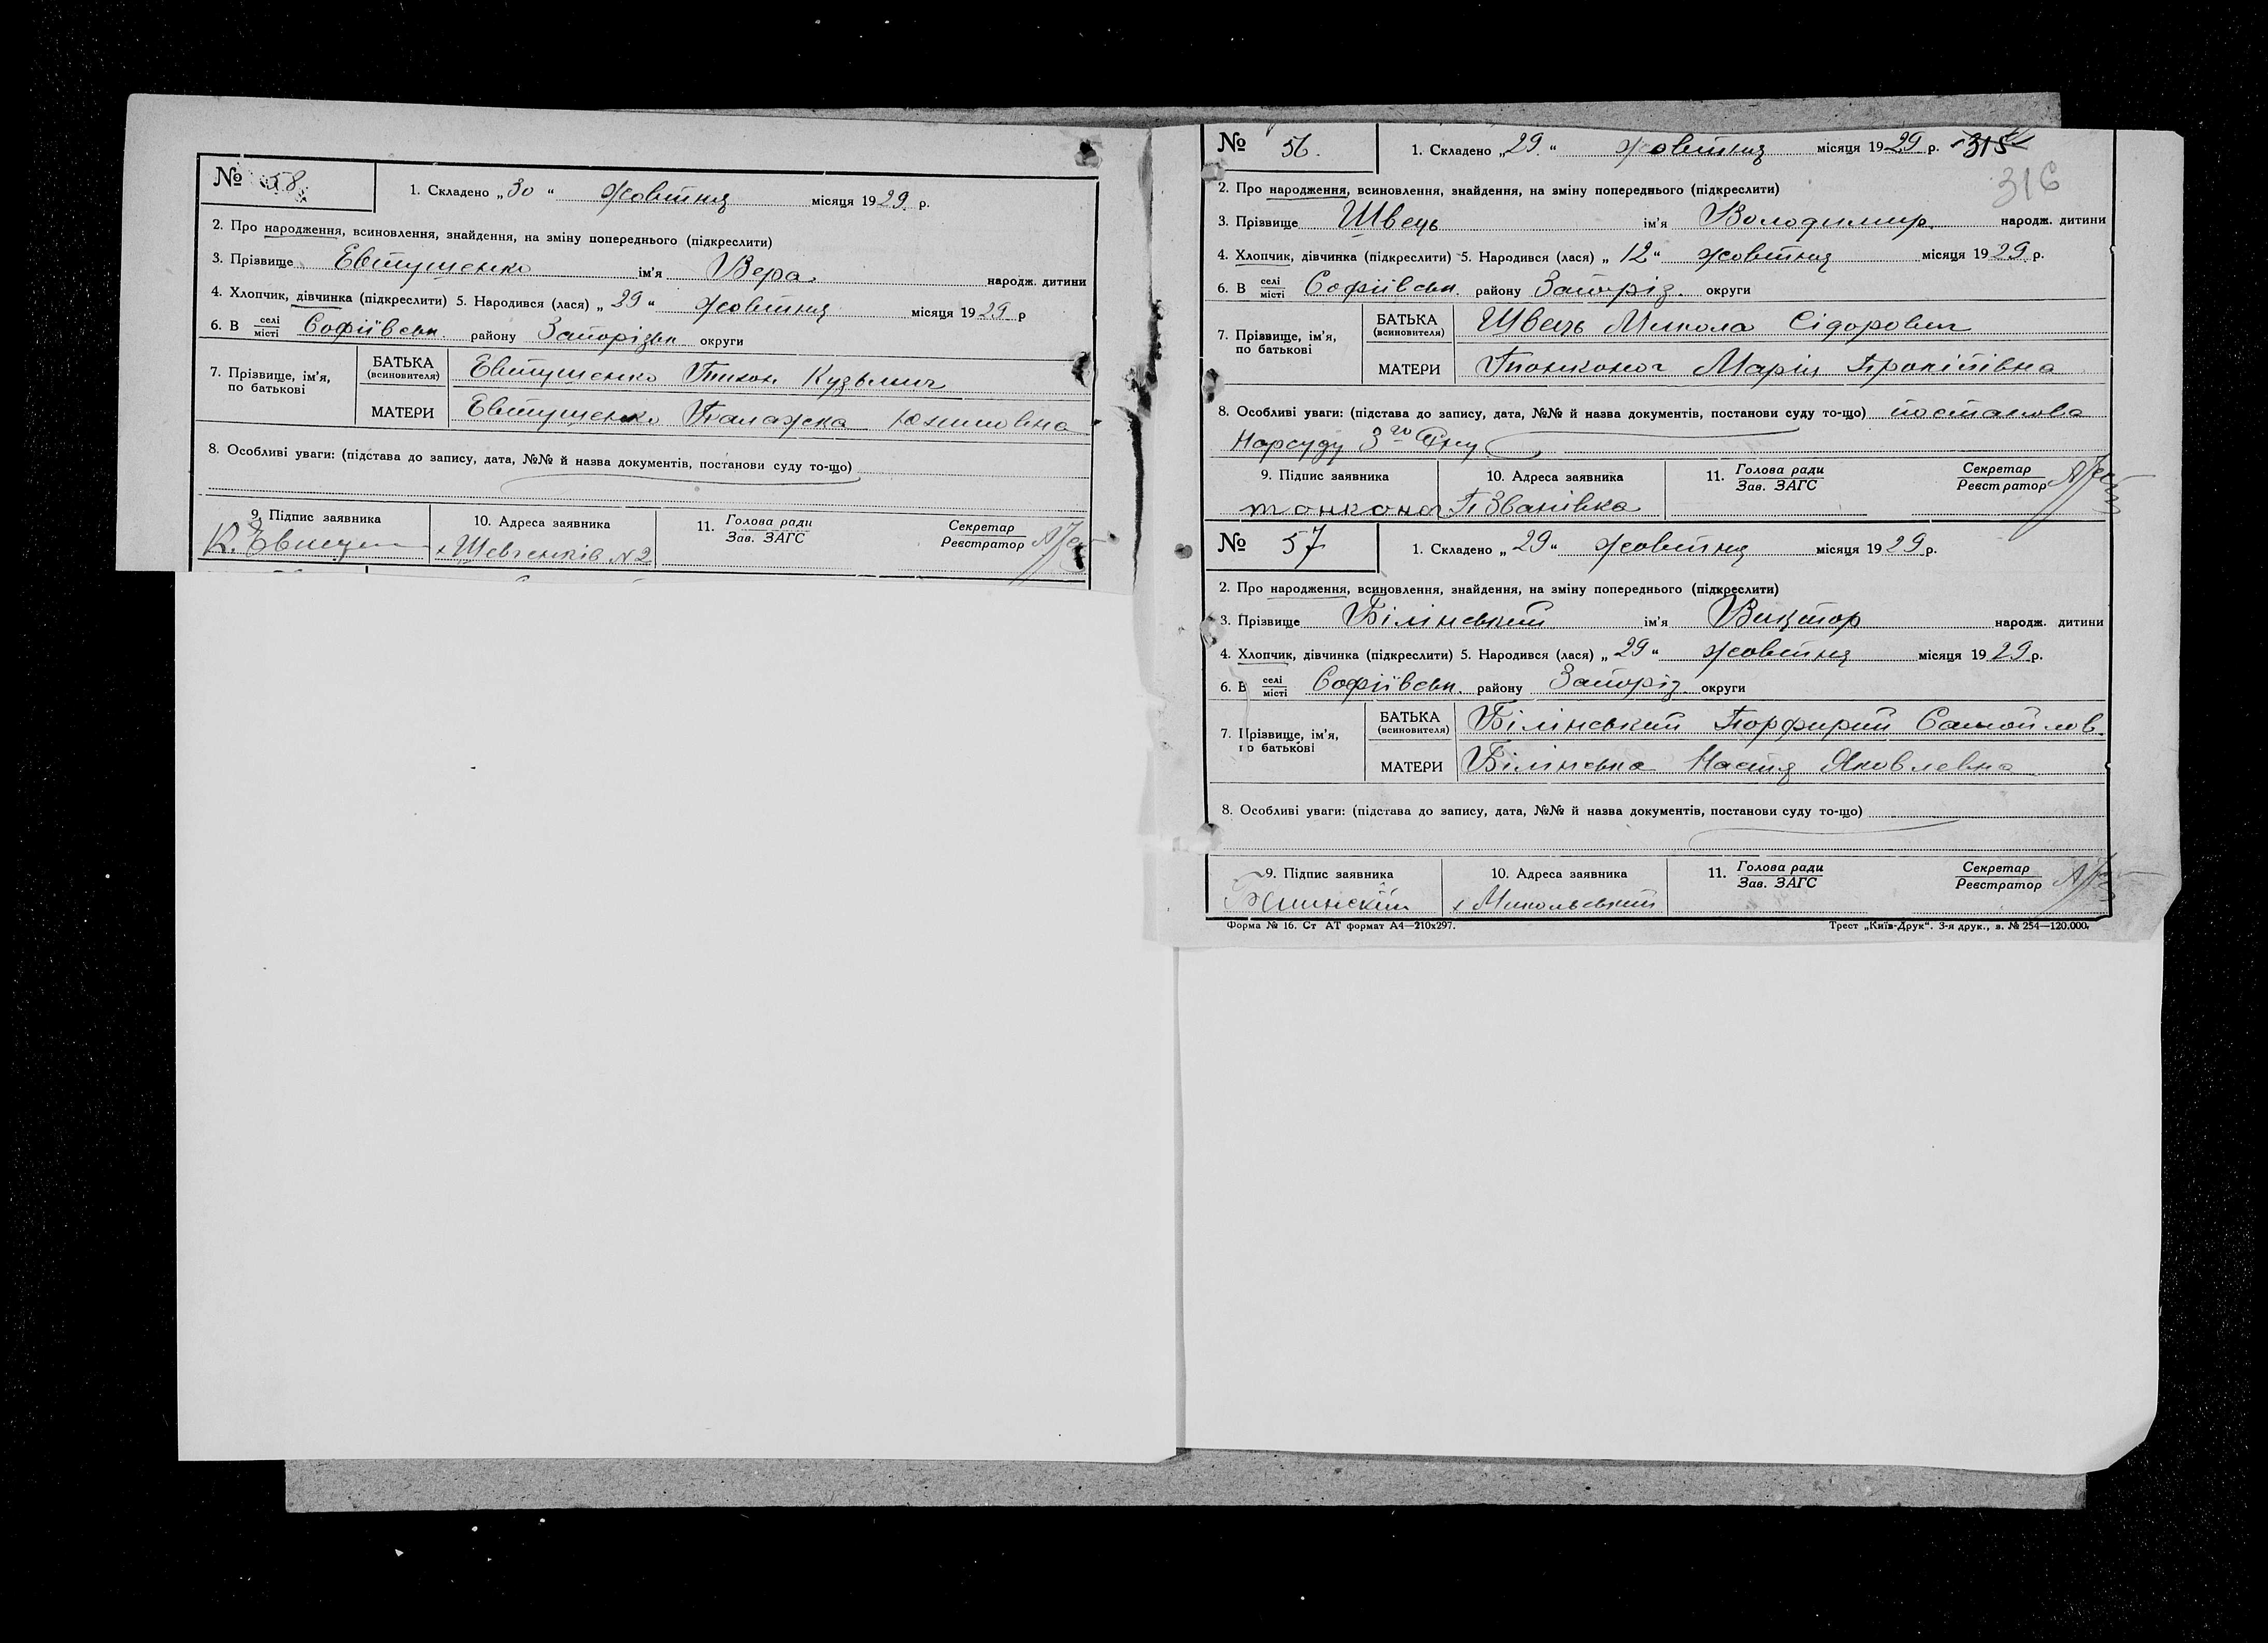 № 58
1. Складено „30“ жовтня місяця 1929 р.
2. Про народження, всиновлення, знайдення, на зміну попереднього (підкреслити)
3. Прізвище Евтушенко ім'я Вера народж. дитини
4. Хлопчик, дівчинка (підкреслити) 5. Народився (лася) „29“ жовтня місяця 1929 р
6. В селі місті Софіївськ. району Запорізьк округи
7. Прізвище, ім'я, по батькові
БАТЬКА (всиновителя) Евтушенко Тихон Кузьмич
МАТЕРИ Евтушенко Палажка
8. Особливі уваги: (підстава до запису, дата, №№ й назва документів, постанови суду то-що)
9. Підпис заявника 10. Адреса заявника 11. Голова ради Зав. ЗАГС Секретар Реєстратор
К. х Шевченків N 2
№ 56.
1. Складено „29.“ жовтня місяця 1929 р. 315
316
2. Про народження, всиновлення, знайдення, на зміну попереднього (підкреслити)
3. Прізвище Швець ім'я Володимир народж. дитини
4. Хлопчик, дівчинка (підкреслити) 5. Народився (лася) „12“ жовтня місяця 1929 р.
6. В селі місті Софіївськ. району Запоріз. округи
7. Прізвище, ім'я, по батькові
БАТЬКА (всиновителя) Швець Микола Сідорович
МАТЕРИ Тонконог Марія
8. Особливі уваги: (підстава до запису, дата, №№ й назва документів, постанови суду то-що) постанова
Нарсуду 3го
9. Підпис заявника 10. Адреса заявника 11. Голова ради Зав. ЗАГС Секретар Реєстратор
тонконог Званівка
№ 57
1. Складено „29“ жовтня місяця 1929 р.
2. Про народження, всиновлення, знайдення, на зміну попереднього (підкреслити)
3. Прізвище Білінський ім'я Виктор народж. дитини
4. Хлопчик, дівчинка (підкреслити) 5. Народився (лася) „29“ жовтня місяця 1929 р.
6. В селі місті Софіївськ. району Запоріз. округи
7. Прізвище, ім'я, по батькові
БАТЬКА (всиновителя) Білінський Порфирий Самойлов.
МАТЕРИ Білінська Настя Яковлевна
8. Особливі уваги: (підстава до запису, дата, №№ й назва документів, постанови суду то-що)
9. Підпис заявника 10. Адреса заявника 11. Голова ради Зав. ЗАГС Секретар Реєстратор
х Микольський
Форма № 16. Ст АТ формат А4—210х297. Трест „Київ-Друк“. 3-я друк., з. № 254—120.000.